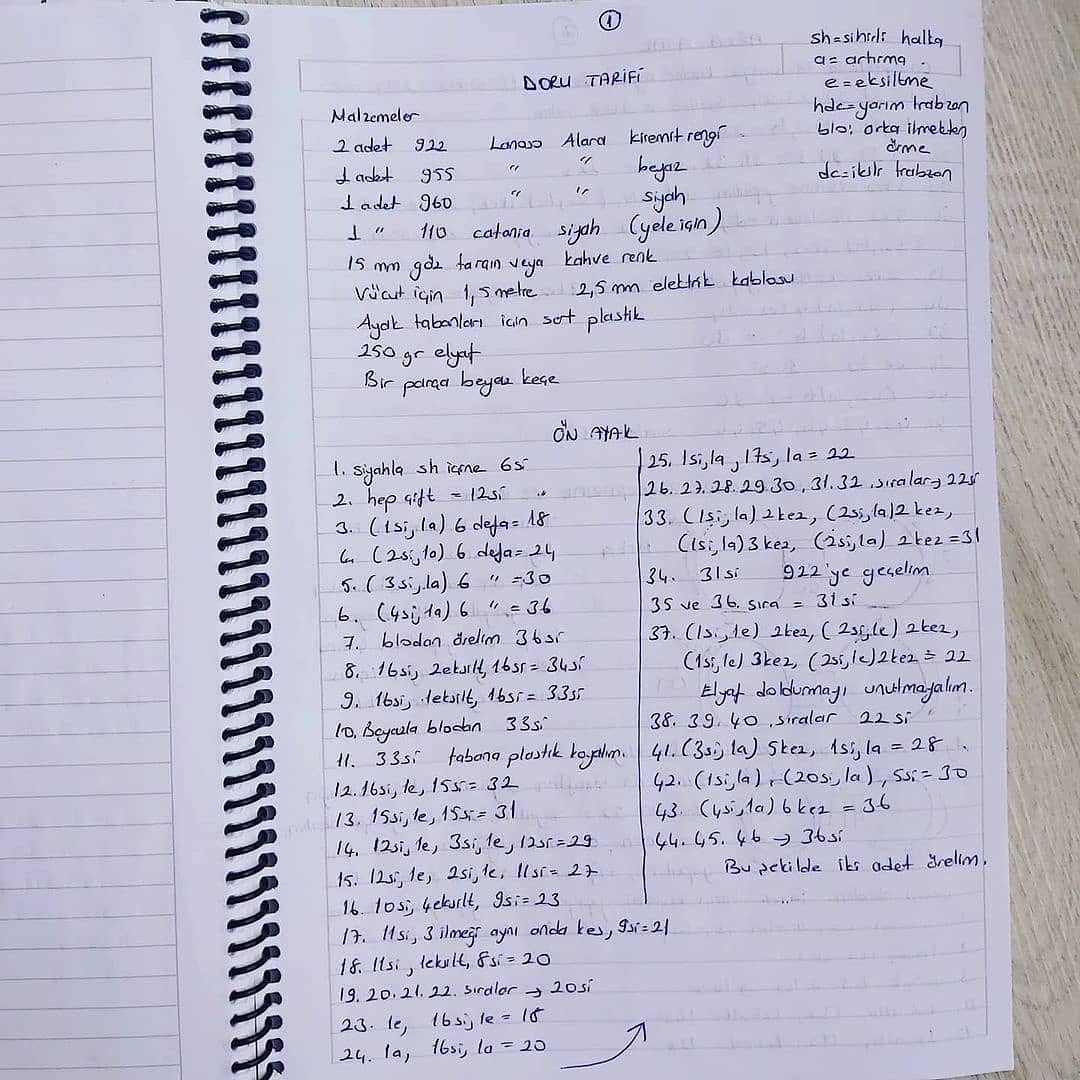 1
sh=sihirli halka
a= artırma
e=eksiltme
hdc=yarım trabzan
blo: arka ilmekten
örme
dc=ikili trabzan
DORU TARİFİ
Malzemeler
2 adet 922 Lanoso Alara kiremit rengi
1 adet 955 " " beyaz
1 adet 960 " " siyah
1 " 110 catania siyah (yele için)
15 mm göz tarçın veya kahve renk
Vücut için 1,5 metre 2,5 mm elektrik kablosu
Ayak tabanları için sert plastik
250 gr elyaf
Bir parça beyaz keçe
ÖN AYAK
1. siyahla sh içine 6si
2. hep çift = 12si
3. (1si, 1a) 6 defa= 18
4. (2si, 1a) 6 defa= 24
5. (3si, 1a) 6 " =30
6. (4si, 1a) 6 " = 36
7. blodan örelim 36si
8. 16si, 2eksilt, 16si= 34si
9. 16si, 1eksilt, 16si= 33si
10. Beyazla blodan 33si
11. 33si tabana plastik koyalım.
12. 16si, 1e, 15si= 32
13. 15si, 1e, 15si= 31
14. 12si, 1e, 3si, 1e, 12si=29
15. 12si, 1e, 2si, 1e, 11si= 27
16. 10si, 4eksilt, 9si= 23
17. 11si, 3 ilmeği aynı anda kes, 9si=21
18. 11si, 1eksilt, 8si= 20
19. 20. 21. 22. sıralar → 20si
23. 1e, 16si, 1e = 18
24. 1a, 16si, 1a = 20
25. 1si, 1a, 17si, 1a = 22
26. 27. 28. 29. 30. 31. 32. sıralar → 22si
33. (1si, 1a) 2kez, (2si, 1a) 2 kez,
(1si, 1a) 3 kez, (2si, 1a) 2kez =31
34. 31si 922'ye geçelim
35 ve 36. sıra = 31si
37. (1si, 1e) 2kez, (2si, 1e) 2kez,
(1si, 1e) 3kez, (2si, 1e) 2kez = 22
Elyaf doldurmayı unutmayalım.
38. 39. 40. sıralar 22si
41. (3si, 1a) 5kez, 1si, 1a = 28
42. (1si, 1a), (20si, 1a), 5si= 30
43. (4si, 1a) 6 kez = 36
44. 45. 46 → 36si
Bu şekilde iki adet örelim.